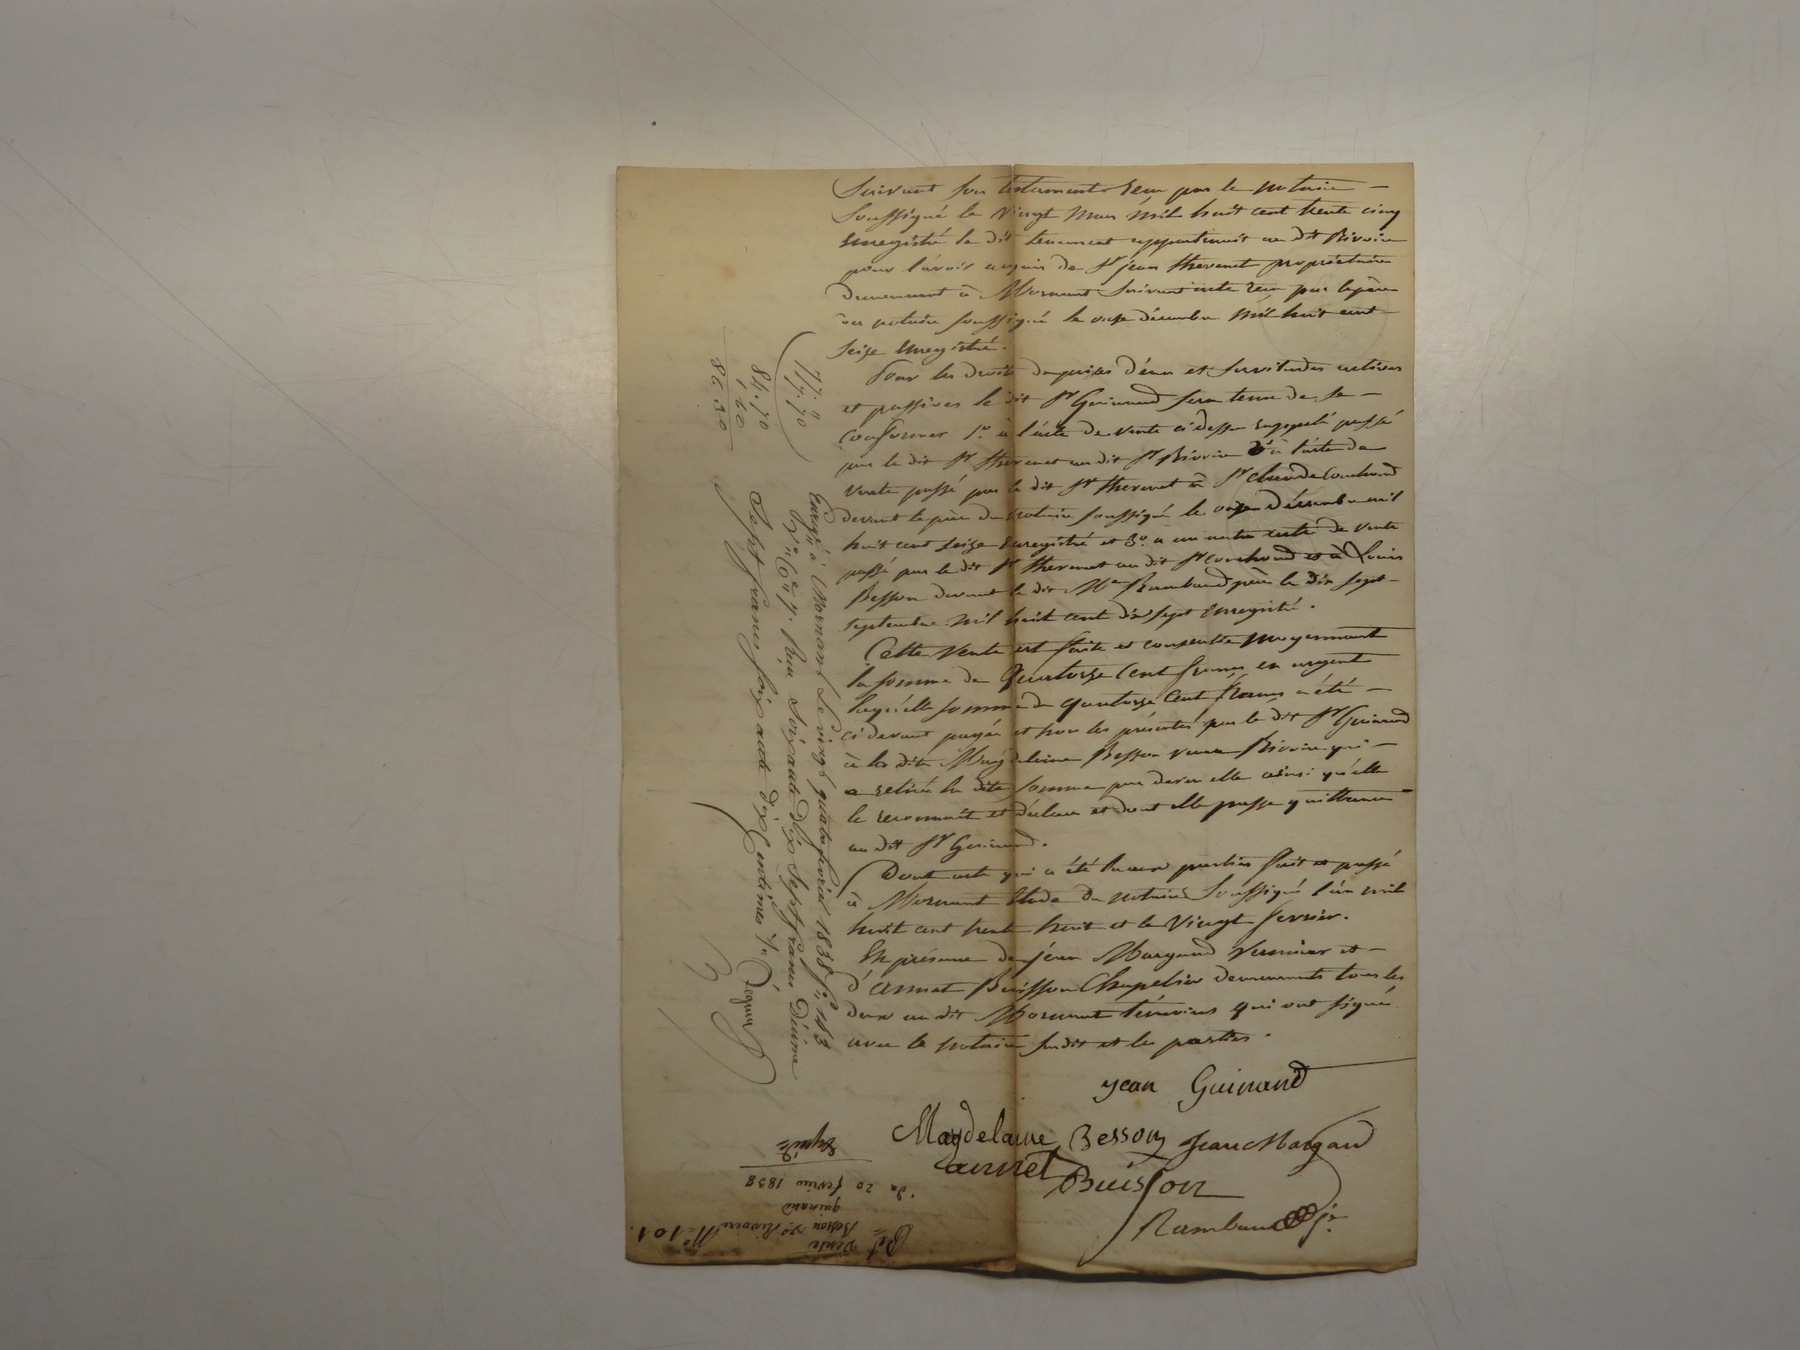 Suivant son testament reçu par le notaire —
Soussigné le vingt mars mil huit cent trente cinq
Enregistré le dit tenement appartenoit au dit Rivoire
pour l'avoir acquis de Sr jean thevenet propriétaire
Demeurant à Mornant Suivant acte reçu par le père
du notaire soussigné le onze décembre mil huit cent
Seize Enregistré.
Pour les droits de prises d'eau et servitudes actives
et passives le dit Sr Guinand sera tenu de se —
Conformer 1o à l'acte de vente ci dessus rappelé passé
par le dit Sr thevenet au dit Sr Rivoire 2o à l'acte de
vente passé par le dit Sr thevenet à Sr claude Couchoud
devant le père du notaire soussigné le onze décembre mil
huit cent seize Enregistré et 3o a un autre acte de vente
passé par le dit Sr thevenet au dit Sr Couchoud et à Louis
Besson devant le dit Me Rambaud père le dix sept
septembre mil huit cent dix sept Enregistré.
Cette Vente est faite et consentie moyennant
la somme de Quatorze Cent francs en argent
laquelle somme de quatorze cent francs a été —
ci devant payée et hors les présentes par le dit Sr Guinand
à la dite Magdeleine Besson veuve Rivoire qui —
a retiré la dite somme par devers elle ainsi qu'elle
le reconnoit et déclare et dont elle passe quittance
au dit Sr Guinand.
Dont acte qui a été lu aux parties fait et passé
à Mornant Etude du notaire Soussigné l'an mil
huit cent trente huit et le Vingt fevrier.
En présence de jean Margand et —
d'annet Buisson Chapelier demeurants tous les
deux au dit Mornant témoins qui ont signé
avec le notaire susdit et les parties.
jean Guinand
Magdelaine Besson Jean Margand
annet Buisson
Rambaud jne
Enregé à Mornant le vingt quatre fevrier 1838 fo 143
Ro Co 6 et 7. Reçu Soixante dix Sept francs Décime
Sept francs soixante dix centimes
77. "
7. 70
84. 70
1. 60
86. 30
No 101.
Vente
Besson Ve Rivoire
guinand
du 20 fevrier 1838
Expédié